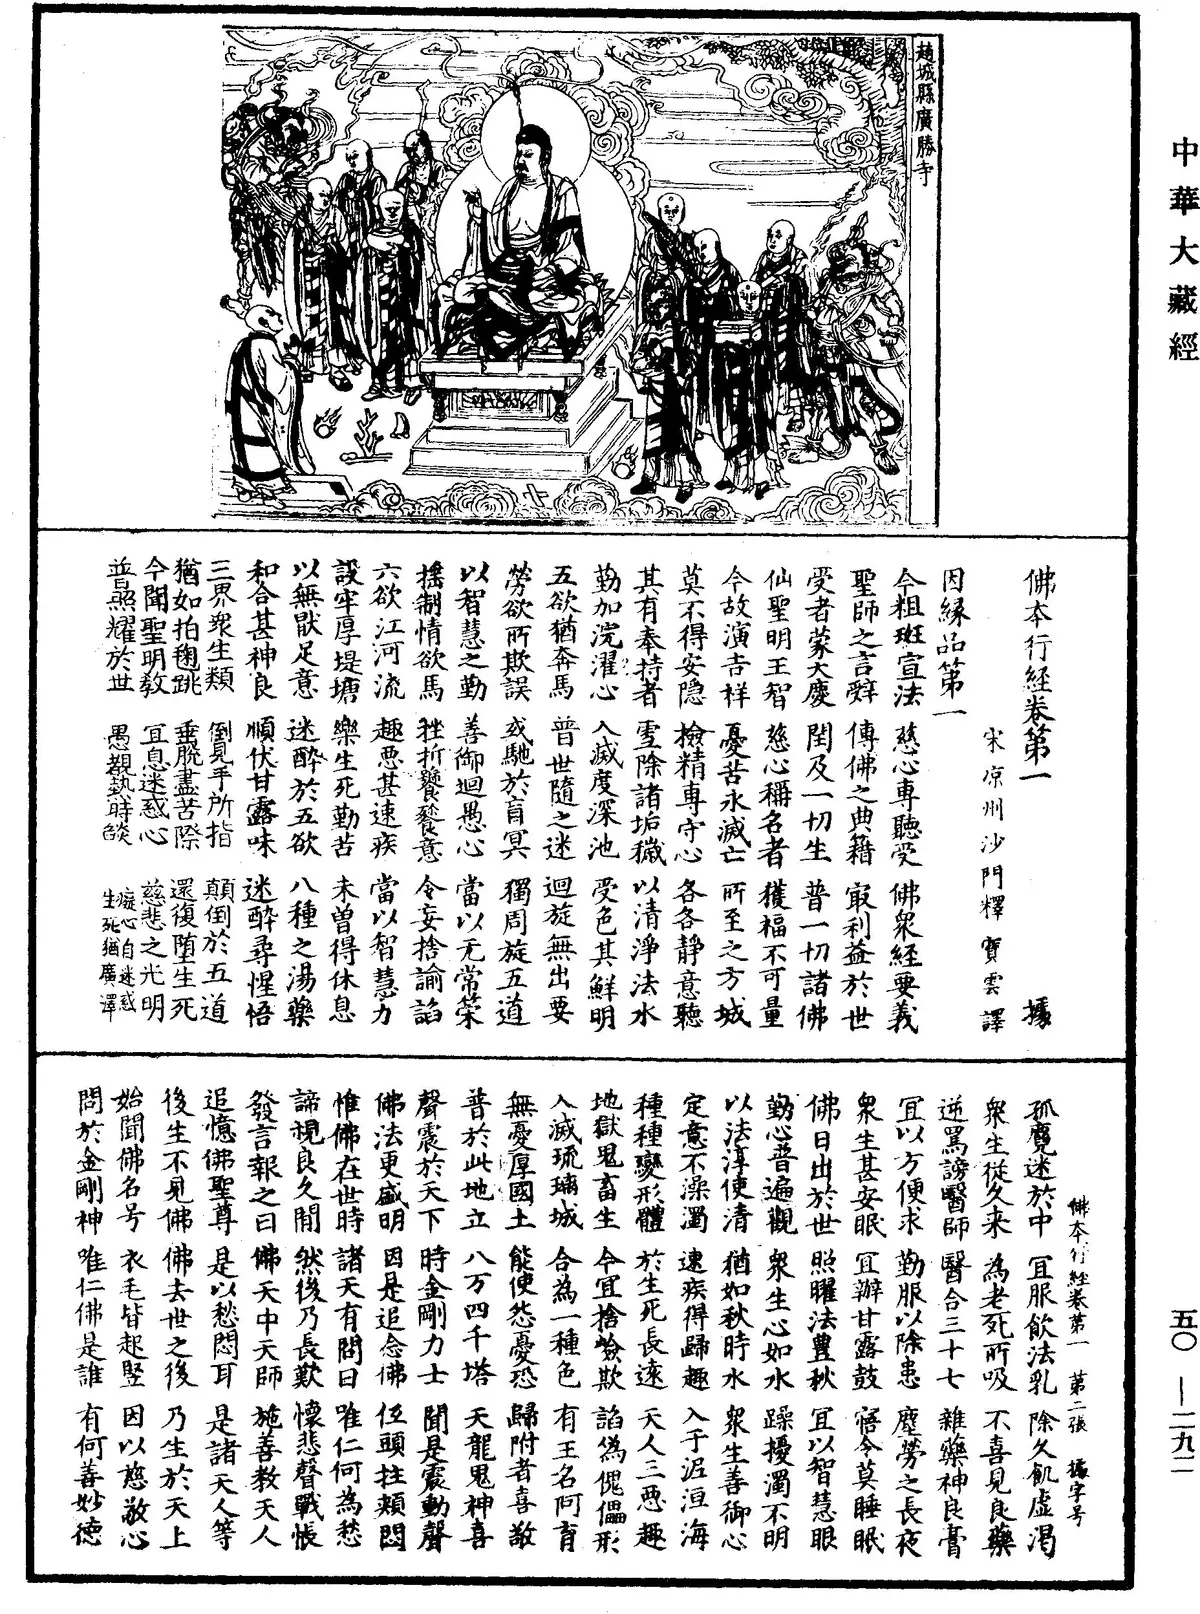 中華大藏經
趙城縣廣勝寺
佛本行經卷第一 據
宋凉州沙門釋寶雲譯
因緣品第一
今粗班宣法 慈心專聽受 佛衆經要義
聖師之言辭 傳佛之典籍 㝡利益於世
受者蒙大慶 閏及一切生 普一切諸佛
仙聖明王智 慈心稱名者 獲福不可量
今故演吉祥 憂苦永滅亡 所至之方城
莫不得安隱 撿精專守心 各各靜意聽
其有奉持者 雪除諸垢穢 以清淨法水
勤加浣濯心 入滅度深池 受色其鮮明
五欲猶奔馬 普世隨之迷 迴旋無出要
勞欲所欺誤 或馳於盲冥 獨周旋五道
以智慧之勤 善御迴愚心 當以无常策
揺制情欲馬 挫折饕餮意 令妄捨諭諂
六欲江河流 趣惡甚速疾 當以智慧力
設牢厚堤塘 樂生死勤苦 未曽得休息
以無猒足意 迷醉於五欲 八種之湯藥
和合甚神良 順伏甘露味 迷醉尋惺悟
三界衆生類 倒見手所指 顛倒於五道
猶如拍毱跳 垂脫盡苦際 還復墮生死
今聞聖明教 冝息迷惑心 慈悲之光明
普照耀於世 愚覩熱時𦦨 癡心自迷惑 生死猶廣澤
佛本行經卷第一 第二張 據字号
孤㝅迷於中 冝服飲法乳 除久飢虚渴
衆生從久来 為老死所吸 不喜見良藥
逆罵謗醫師 醫合三十七 雜藥神良膏
冝以方便求 勤服以除患 塵勞之長夜
衆生甚安眠 冝辦甘露鼓 寤令莫睡眠
佛日出於世 照曜法豊秋 冝以智慧眼
勤心普遍觀 衆生心如水 躁擾濁不明
以法淳使清 猶如秋時水 衆生善御心
定意不澡濁 速疾得歸趣 入于泥洹海
種種變形體 於生死長遠 天人三惡趣
地獄鬼畜生 今冝捨嶮欺 諂偽傀儡形
入滅琉璃城 合為一種色 有王名阿育
無憂厚國土 能使怨憂恐 歸附者喜敬
普於此地立 八万四千塔 天龍鬼神喜
聲震於天下 時金剛力士 聞是震動聲
佛法更盛明 因是追念佛 伍頭拄頰悶
惟佛在世時 諸天有問曰 唯仁何為愁
諦視良久閒 然後乃長歎 懷悲聲戰悵
發言報之曰 佛天中天師 施善教天人
追憶佛聖尊 是以愁悶耳 是諸天人等
後生不見佛 佛去世之後 乃生於天上
始聞佛名号 衣毛皆起竪 因以慈敬心
問於金剛神 唯仁佛是誰 有何善妙德
五〇—二九二